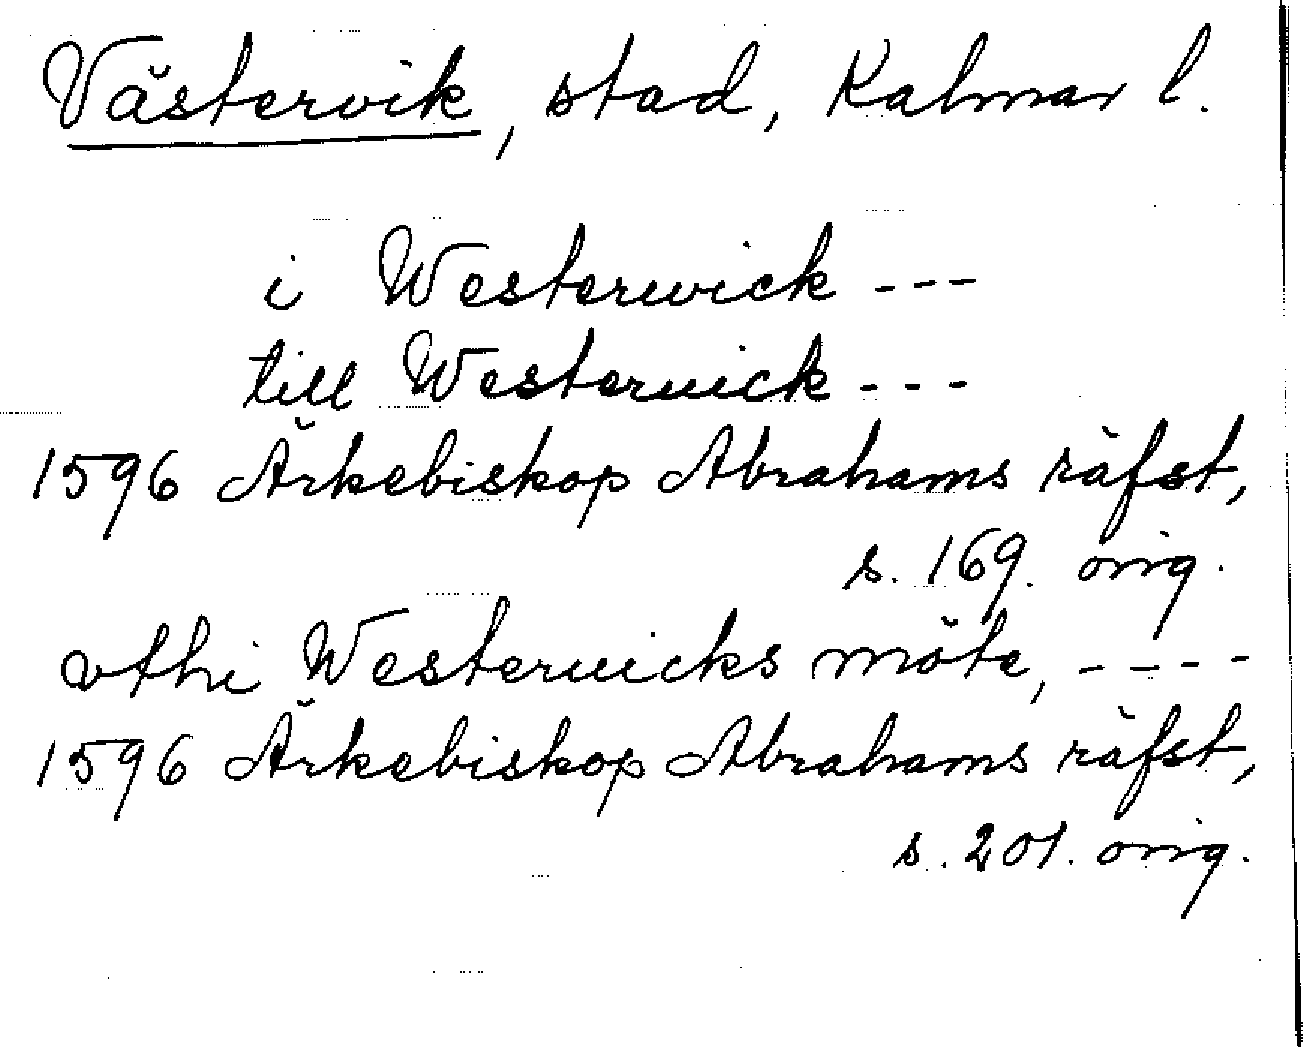 Västervik, stad, Kalmar l.
i Westerwick ---
till Westeruick ---
1596 Ärkebiskop Abrahams räfst,
s. 169. orig.
vthi Westeruicks möte, ----
1596 Ärkebiskop Abrahams räfst,
s. 201. orig.